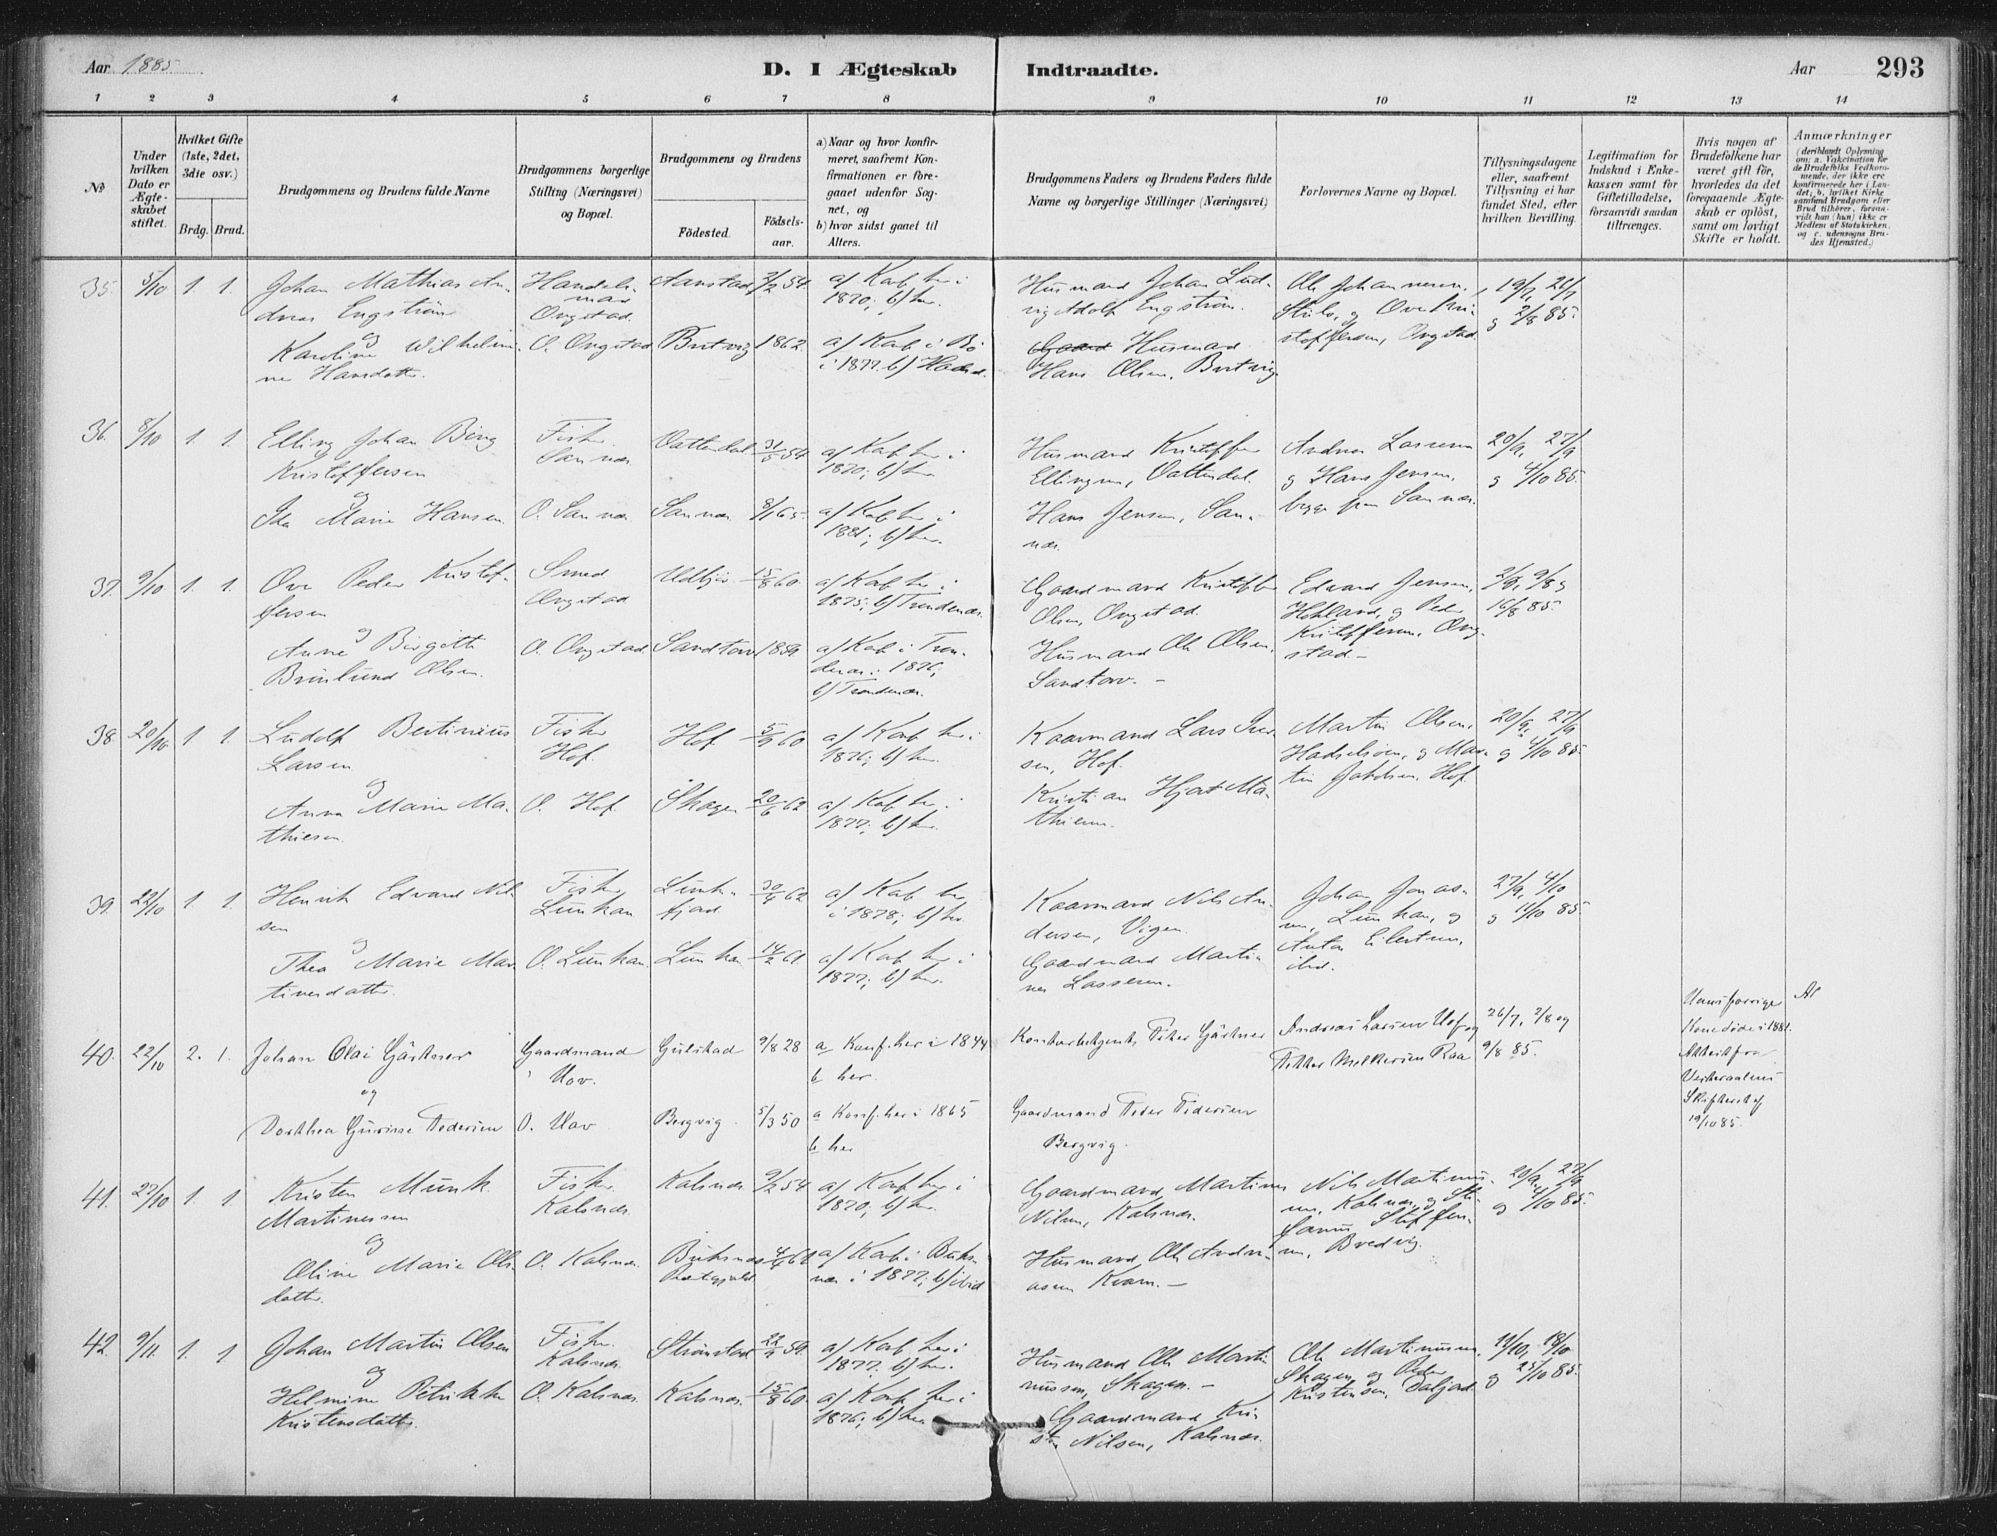 Aar 1885
D. I Ægteskab Indtraadte.
Aar 293
1 2 3 4 5 6 7 8 9 10 11 12 13 14
No
Under hvilken Dato er Ægteskabet stiftet.
Hvilket Gifte (1ste, 2det, 3die osv.)
Brdg. Brud.
Brudgommens og Brudens fulde Navne
Brudgommens borgerlige Stilling (Næringsvei) og Bopæl.
Brudgommens og Brudens
Fødested.
Fødselsaar.
a) Naar og hvor konfirmeret, saafremt Konfirmationen er foregaaet udenfor Sognet, og
b) hvor sidst gaaet til Alters.
Brudgommens Faders og Brudens Faders fulde Navne og borgerlige Stillinger (Næringsvei)
Forlovernes Navne og Bopæl.
Tillysningsdagene eller, saafremt Tillysning ei har fundet Sted, efter hvilken Bevilling.
Legitimation for Indskud i Enkekassen samt for Giftetilladelse, forsaavidt saadan tiltrænges.
Hvis nogen af Brudefolkene har været gift før, hvorledes da det foregaaende Ægteskab er opløst, samt om lovligt Skifte er holdt.
Anmærkninger
(deriblandt Oplysning om: a. Vakcination for de Brudefolks Vedkommende, der ikke ere konfirmerede her i Landet; b. hvilket Kirkesamfund Brudgom eller Brud tilhører, forsaavidt han (hun) ikke er Medlem af Statskirken, og c. udensogns Brudes Hjemsted.)
35. 5/10 1. 1. Johan Matthias An-
dreas Engström
og
Karoline Wilhelmi-
ne Hansdatter.
Handels-
mand
Ongstad.
O. Ongstad
Aanstad 2/2 54
1862.
a/ Konf. her i
1870; b/ her.
a/ Konf. i Bø
i 1877. b/ Hadsel.
Husmand Johan Lud-
vig Adolf Engström.
Husmand
Hans Olsen,
Ole Johannesen,
og Ove Kri-
stoffersen, Ongstad.
19/7, 26/7
og 2/8 85.
36. 8/10 1. 1. Elling Johan Bing
Kristoffersen
og
Ida Marie Hansen
Fisker
Sannes
O. Sannes
Vatterdal 31/5 54
Sannes 8/1 65.
a/ Konf. her i
1870; b/ her
a/ Konf. her i
1881; b/ her.
Husmand Kristoffer
Ellingsen, Vatterdal.
Hans Jensen, San-
nes.
Andreas Larsen
og Hans Jensen,
begge fra Sannes.
20/9, 27/9
og 4/10 85.
37. 9/10 1. 1. Ove Peder Kristof-
fersen
og
Anne Birgitte
Brinlund Olsen.
Smed
Ongstad
O. Ongstad
15/8 60.
Sandtorv 1859
a/ Konf. her i
1875; b/ Trondenæs.
a/ Konf. i Tron-
denæs i 1876;
b/ Trondenæs.
Gaardmand Kristoffer
Olsen, Ongstad.
Husmand Ole Olsen,
Sandtorv. –
Edvard Jensen,
og Peder
Kristoffersen, Ong-
stad –
2/8, 9/8 og
16/8 85.
38. 20/10 1. 1. Ludolf Bertinius
Larsen
og
Anna Marie Ma-
thiesen.
Fisker
Hof.
O. Hof
Hof 5/9 60
Skagen 20/6 62
a/ Konf. her i
1876; b/ her.
a/ Konf. her i
1877; b/ her.
Kaarmand Lars Iver-
sen, Hof.
Kristian Hjort Ma-
thiesen.
Martin Olsen,
og Mar-
tin Jakobsen, Hof.
20/9, 27/9
og 4/10 85.
39. 22/10 1. 1. Henrik Edvard Nil-
sen
og
Thea Marie Mar-
tinesdatter.
Fisker
Lunkan
O. Lunkan.
30/4 62
Lunkan 14/2 61
a/ Konf. her
i 1878; b/ her
a/ Konf. her i
1877; b/ her.
Kaarmand Nils An-
dersen, Vigen.
Gaardmand Marti-
nes Lassesen.
Johan Jonas-
sen, Lunkan, og
Anton Eilertsen,
ibid.
27/9, 4/10
og 11/10 85
40. 22/10 2. 1. Johan Olai Gärtner
og
Dorthea Gurine Pedersen
Gaardmand
Hov.
O. Hov
Gulstad 9/8 28
Bergvig 5/3 50
a Konf. her i 1844
b her.
a Konf. her i 1865
b her
Peter Gärtner
Gaardmand Peder Pedersen
Bergvig.
Andreas Larsen Hof og
Petter Melkersen Raa
26/7, 2/8 og
9/8 85.
Hans forrige
Kone døde i 1881.
Attest fra
Vesteraalens
Skifteret af
19/10 85.
41. 27/10 1. 1 Kristen Munk
Martinessen
og
Oline Marie Ols-
datter.
Fisker
Kalsnes.
O. Kalsnes.
Kalsnes 9/2 54
Buksnes 4/4 62
Præstegjeld
a/ Konf. her i
1870; b/ her.
a/ Konf. i Buks-
nes i 1877; b/ ibid
Gaardmand Martines
Nilsen, Kalsnes.
Husmand Ole Andre-
asen Kram. –
Nils Martinus-
sen, Kalsnes, og
Steffen-
sen, Bredvig.
20/9, 27/9
og 4/10 85.
42. 9/11. 1. 1 Johan Martin Olsen
og
Helmine Petrikke
Kristensdatter.
Fisker
Kalsnes.
O. Kalsnes.
Strönstad 59.
Kalsnes. 15/8 60.
a/ Konf. her i
1877. b/ her.
a/ Konf. her i
1876; b/ her
Husmand Ole Marti-
nussen, Skagen. –
Gaardmand Kri-
sten Nilsen, Kalsnes.
Ole Martinussen,
Skagen, og Peder
Kristensen,
11/10, 18/10
og 25/10 85.